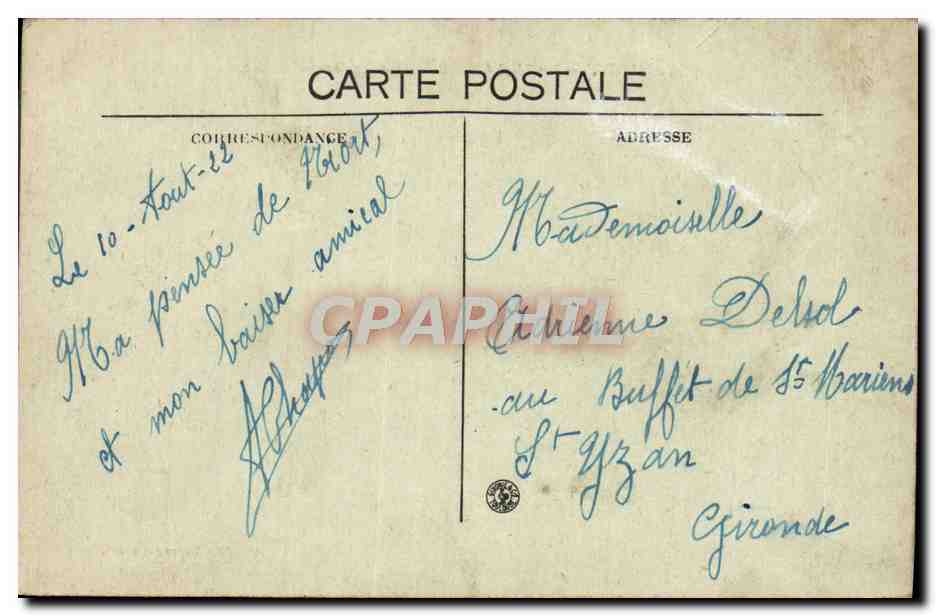 CARTE POSTALE
CORRESPONDANCE
Le 10 - Aout - 22
Ma pensée de Niort,
et mon baiser amical
ADRESSE
Mademoiselle
Adrienne Delsol
au Buffet de St Mariens
St Yzan
Gironde
CPAPHIL